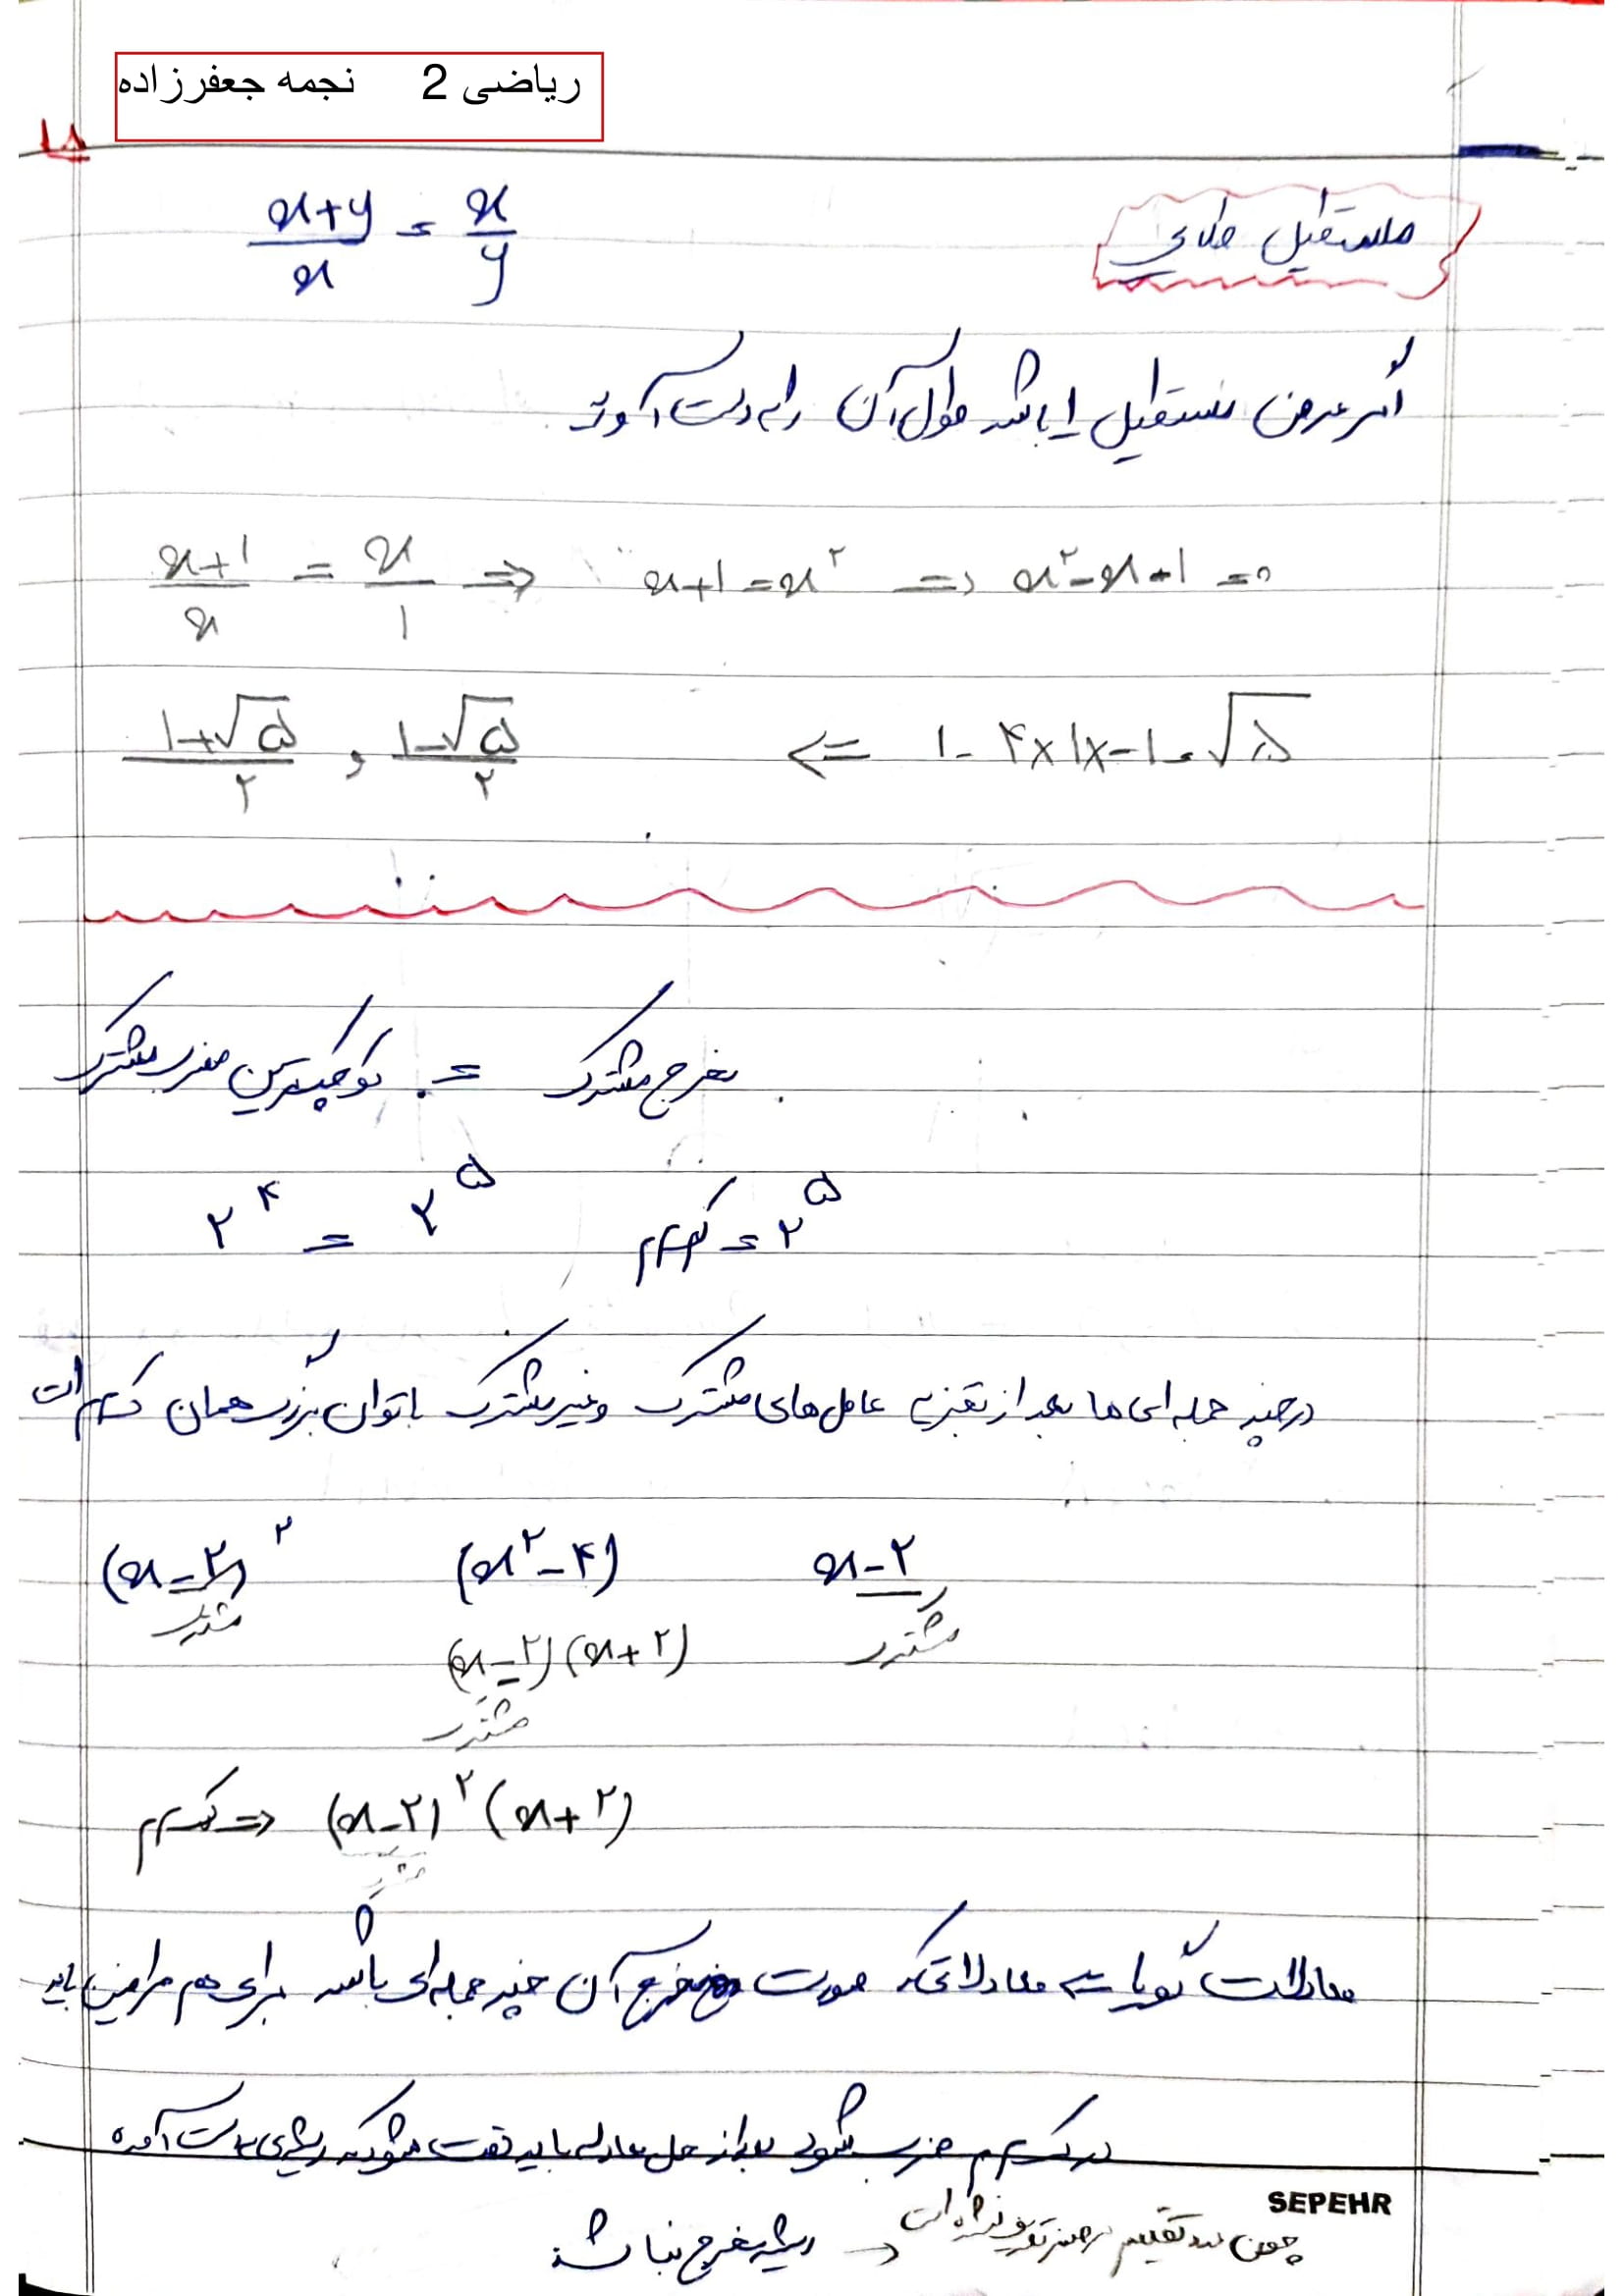 ریاضی 2 نجمه جعفرزاده
۱۸
مستطیل طلایی
x+y/x = x/y
اگر عرض مستطیل ۱ باشد طول آن را بدست آورید
x+1/x = x/1 ⇒ x+1=x² ⇒ x²-x-1=0
1-۴×1×-1=√۵ ⇒ 1+√۵/۲ , 1-√۵/۲
مخرج مشترک = کوچکترین مضرب مشترک
۲^۴ = ۲^۵ ک.م.م = ۲^۵
در چند جمله ای ها بعد از تجزیه عامل های مشترک و غیر مشترک با توان بزرگ همان ک.م.م است
(x-۲)² (x²-۴) x-۲
مشترک (x-۲)(x+۲) مشترک
مشترک
ک.م.م ⇐ (x-۲)²(x+۲)
مشترک
معادلات گویا ⇐ معادلاتی که صورت مخرج آن چند جمله ای باشد برای هم طرفین باید
در ک.م.م ضرب شود بعد از حل معادله باید دقت شود که ریشه ی بدست آمده
ریشه مخرج نباشد ← چون تقسیم بر صفر تعریف نشده است
SEPEHR